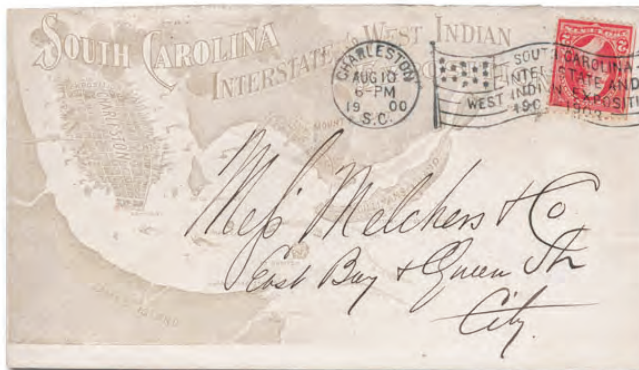 SOUTH CAROLINA
INTERSTATE AND WEST INDIAN
CHARLESTON
AUG 10
6-PM
1900
S.C.
SOUTH CAROLINA
INTERSTATE AND
WEST INDIAN EXPOSITI
2 2
CHARLESTON
MOUNT
JAMES ISLAND
Mess Melchers & Co
East Bay & Queen Sts
City.